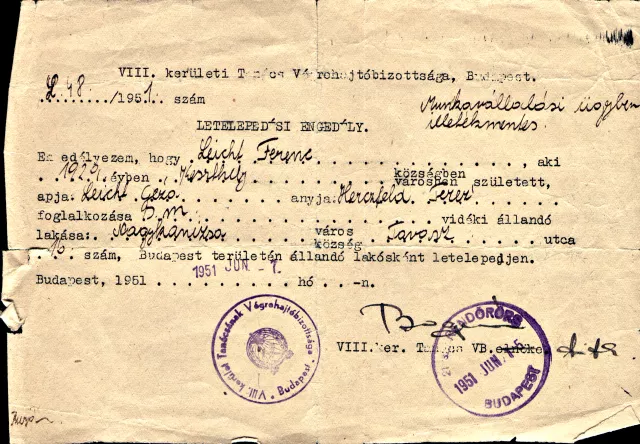 VIII. kerületi Tanács Végrehajtóbizottsága, Budapest.
L. 48 /1951. szám
Munkavállalási ügyben
illetékmentes.
LETELEPEDÉSI ENGEDÉLY.
En edélyezem, hogy Leicht Ferenc, aki
1929. évben Keszthely községben
városban született,
apja: Leicht Géza anyja: Herczfeld Teréz
foglalkozása S.m. vidéki állandó
lakása: Nagykanizsa város Tavasz utca
község
16. szám, Budapest területén állandó lakósként letelepedjen.
1951 JUN - 7.
Budapest, 1951 hó -n.
VIII. kerület Tanácsának Végrehajtóbizottsága Budapest.
VIII.ker. Tanács VB. elnöke
RENDŐRŐRS
1951 JUN.
BUDAPEST